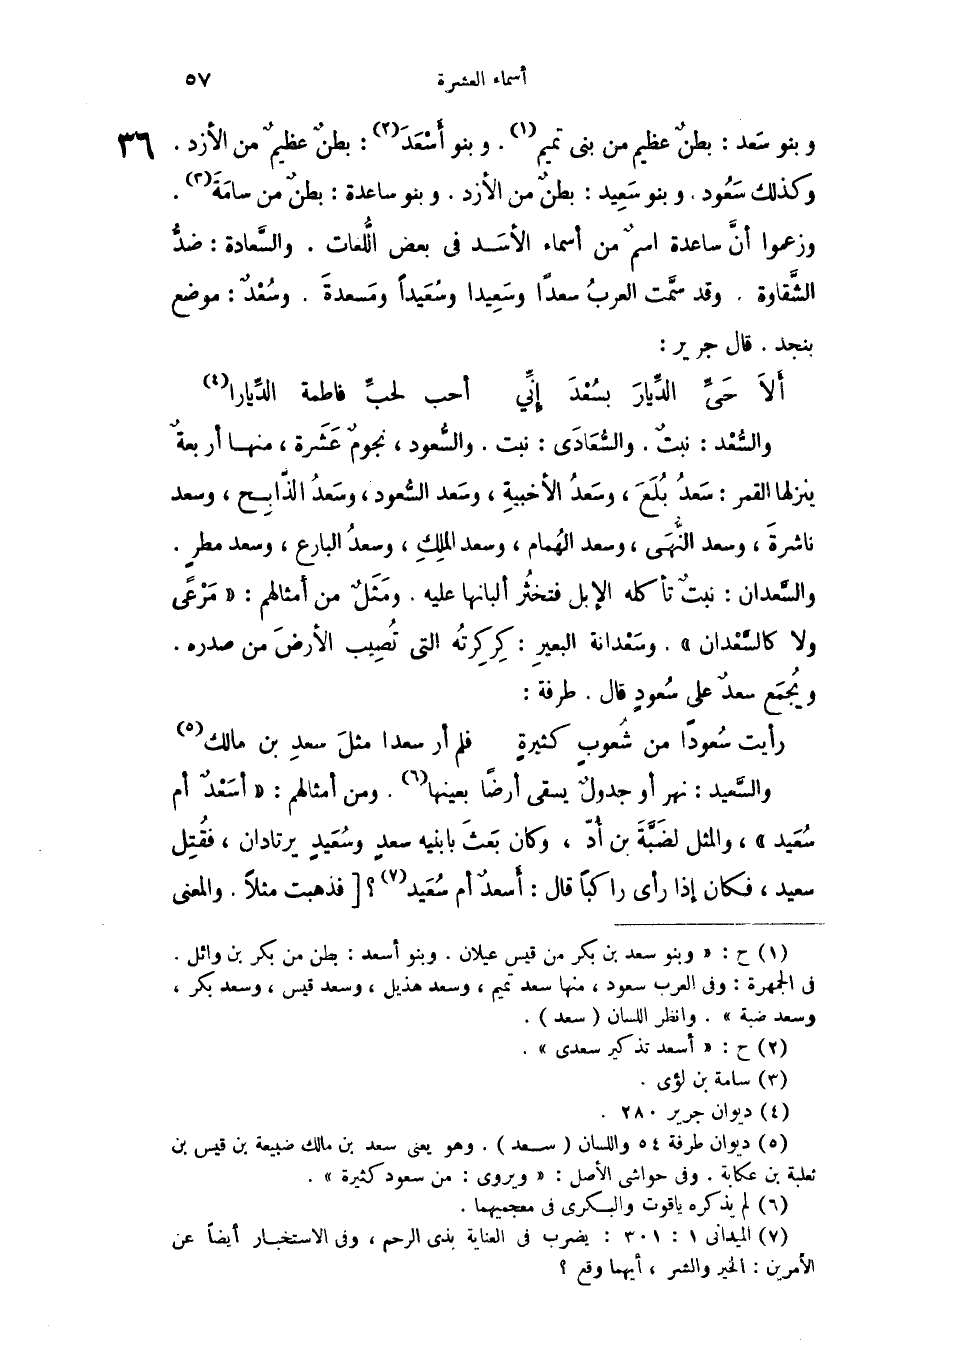 أسماء العشرة ٥٧
وبنو سَعد : بطنٌ عظيم من بنى تميم(١) . وبنو أَسْعَدَ(٢) : بطنٌ عظيمٌ من الأزد . ٣٦
وكذلك سَعُود . وبنو سَعِيد : بطنٌ من الأزد . وبنو ساعدة : بطنٌ من سامَةَ(٣) .
وزعموا أنَّ ساعدة اسمٌ من أسماء الأسَد فى بعض اللُّغات . والسَّعادة : ضدُّ
الشَّقاوة . وقد سمَّت العربُ سعدًا وسَعِيدا وسُعَيداً ومَسعدةَ . وسُعْدٌ : موضع
بنجد . قال جرير :
أَلاَ حَىِّ الدِّيارَ بسُعْدَ إنِّي أحب لحبِّ فاطمة الدِّيارا(٤)
والسُّعْد : نبتٌ . والسُّعَادَى : نبت . والسُّعود ، نجومٌ عَشَرة ، منها أربعةٌ
ينزلها القمر : سَعدُ بُلَعَ ، وسَعدُ الأخبيةِ ، وسَعد السُّعود ، وسَعدُ الذَّابح ، وسعد
ناشرةَ ، وسعد النُّهَى ، وسعد الهُمام ، وسعد الملِكِ ، وسعدُ البارع ، وسعد مطرٍ .
والسَّعدان : نبتٌ تأكله الإبل فتخثُر ألبانها عليه . ومَثَلٌ من أمثالهم : « مَرْعًى
ولا كالسَّعْدان » . وسَعْدانة البعيرِ : كِركِرتُه التى تُصِيب الأرضَ من صدره .
ويُجمَع سعدٌ على سُعودٍ قال . طرفة :
رأيت سُعودًا من شُعوبٍ كثيرةٍ فلم أر سعدا مثلَ سعدِ بن مالك(٥)
والسَّعيد : نهر أو جدولٌ يسقى أرضًا بعينها(٦) . ومن أمثالهم : « أسَعْدٌ أم
سُعَيد » ، والمثل لضَبَّةَ بن أُدّ ، وكان بَعثَ بابنيه سعدٍ وسُعَيدٍ يرتادان ، فقُتِل
سعيد ، فكان إذا رأى راكباً قال : أَسعدٌ أم سُعَيد(٧) ؟ [ فذهبت مثلاً . والمعنى
(١) ح : « وبنو سعد بن بكر من قيس عيلان . وبنو أسعد : بطن من بكر بن وائل .
فى الجمهرة : وفى العرب سعود ، منها سعد تميم ، وسعد هذيل ، وسعد قيس ، وسعد بكر ،
وسعد ضبة » . وانظر اللسان ( سعد ) .
(٢) ح : « أسعد تذكير سعدى » .
(٣) سامة بن لؤى .
(٤) ديوان جرير ٢٨٠ .
(٥) ديوان طرفة ٥٤ واللسان ( سعد ) . وهو يعنى سعد بن مالك ضبيعة بن قيس بن
ثعلبة بن عكابة . وفى حواشى الأصل : « ويروى : من سعود كثيرة » .
(٦) لم يذكره ياقوت والبكرى فى معجميهما .
(٧) الميدانى ١ : ٣٠١ : يضرب فى العناية بذى الرحم ، وفى الاستخبار أيضاً عن
الأمرين : الخير والشر ، أيهما وقع ؟